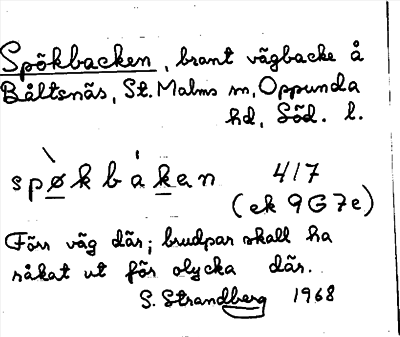 Spökbacken, brant vägbacke å
Båltsnäs, St. Malms sn, Oppunda
hd, Söd. l.
spøkbakan 417
(ek 9G7e)
Förr väg där; brudpar skall ha
råkat ut för olycka där.
S. Strandberg 1968